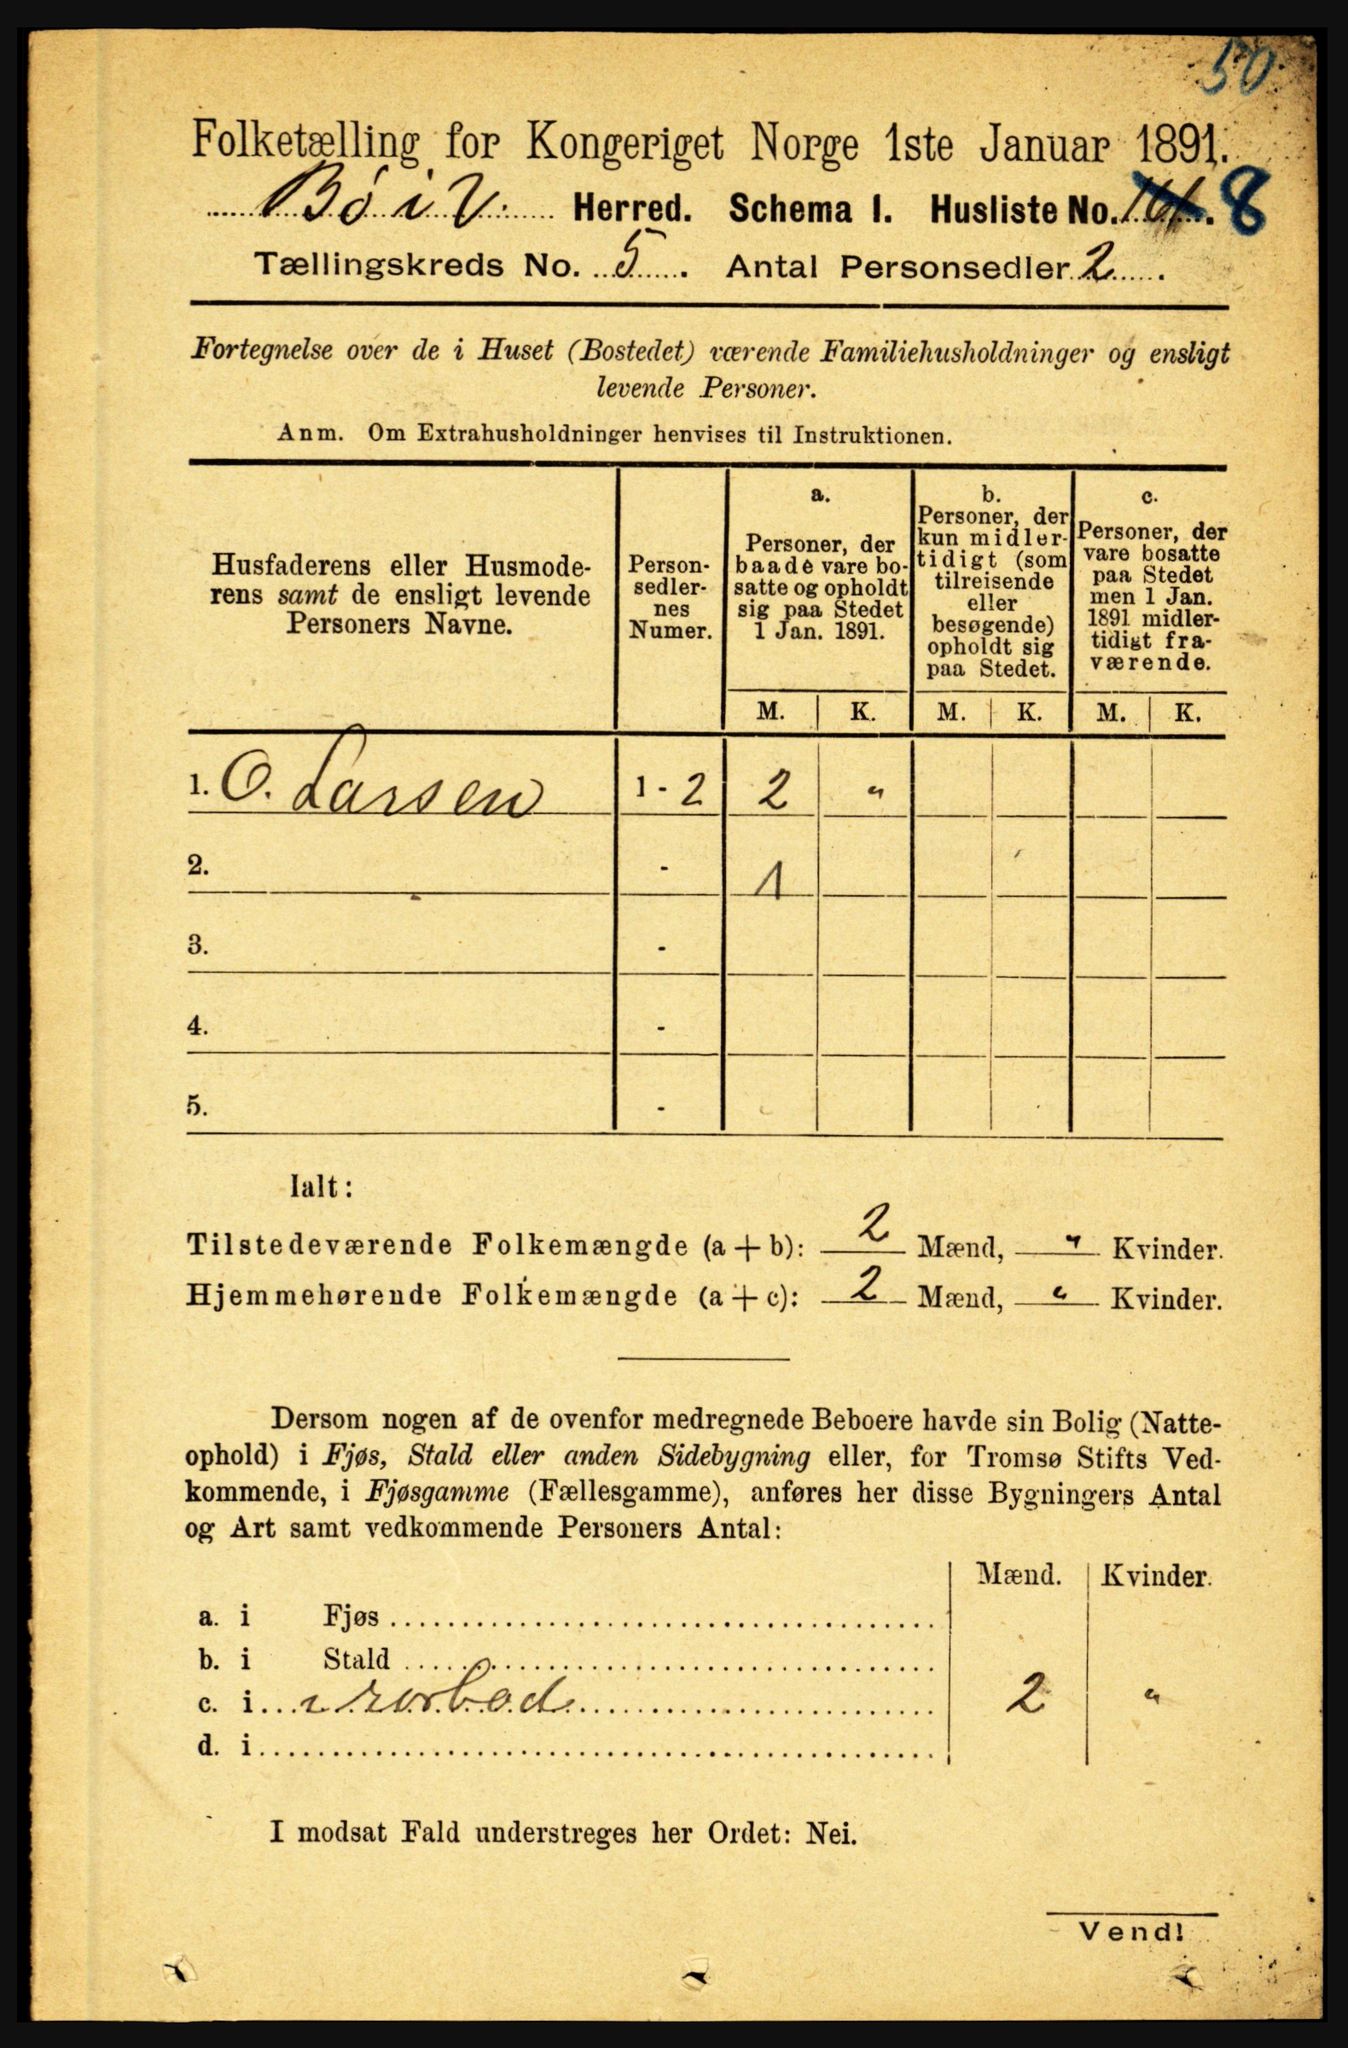 50
Folketælling for Kongeriget Norge 1ste Januar 1891.
Bø i V. Herred. Schema I. Husliste No. 8
Tællingskreds No. 5. Antal Personsedler 2.
Fortegnelse over de i Huset (Bostedet) værende Familiehusholdninger og ensligt
levende Personer.
Anm. Om Extrahusholdninger henvises til Instruktionen.
Husfaderens eller Husmode-
rens samt de ensligt levende
Personers Navne.
Person-
sedler-
nes
Numer.
a.
Personer, der
baade vare bo-
satte og opholdt
sig paa Stedet
1 Jan. 1891.
b.
Personer, der
kun midler-
tidigt (som
tilreisende
eller
besøgende)
opholdt sig
paa Stedet.
c.
Personer, der
vare bosatte
paa Stedet
men 1 Jan.
1891 midler-
tidigt fra-
værende.
M. K. M. K. M. K.
1. O. Larsen 1 - 2 2 "
2. - 1
3. -
4. -
5. -
Ialt:
Tilstedeværende Folkemængde (a + b): 2 Mænd, " Kvinder.
Hjemmehørende Folkemængde (a + c): 2 Mænd, " Kvinder.
Dersom nogen af de ovenfor medregnede Beboere havde sin Bolig (Natte-
ophold) i Fjøs, Stald eller anden Sidebygning eller, for Tromsø Stifts Ved-
kommende, i Fjøsgamme (Fællesgamme), anføres her disse Bygningers Antal
og Art samt vedkommende Personers Antal:
Mænd. Kvinder.
a. i Fjøs
b. i Stald
c. i i rorbod 2 "
d. i
I modsat Fald understreges her Ordet: Nei.
Vend!